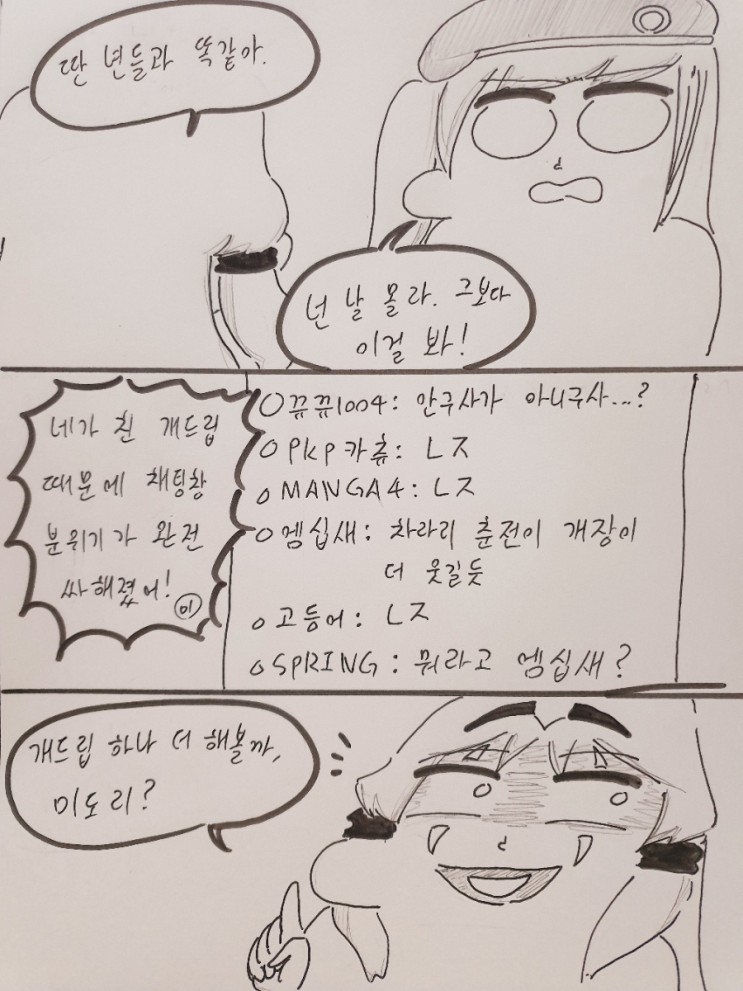 딴 년들과 똑같아.
넌 날 몰라. 그보다
이걸 봐!
네가 친 개드립
때문에 채팅창
분위기가 완전
싸해졌어!
미
○뀨뀨1004: 안구사가 아니구사...?
○PKP카츄: ㄴㅈ
○MANGA4: ㄴㅈ
○엠십새: 차라리 춘전이 개장이
더 웃길듯
○고등어: ㄴㅈ
○SPRING: 뭐라고 엠십새?
개드립 하나 더 해볼까,
미도리?